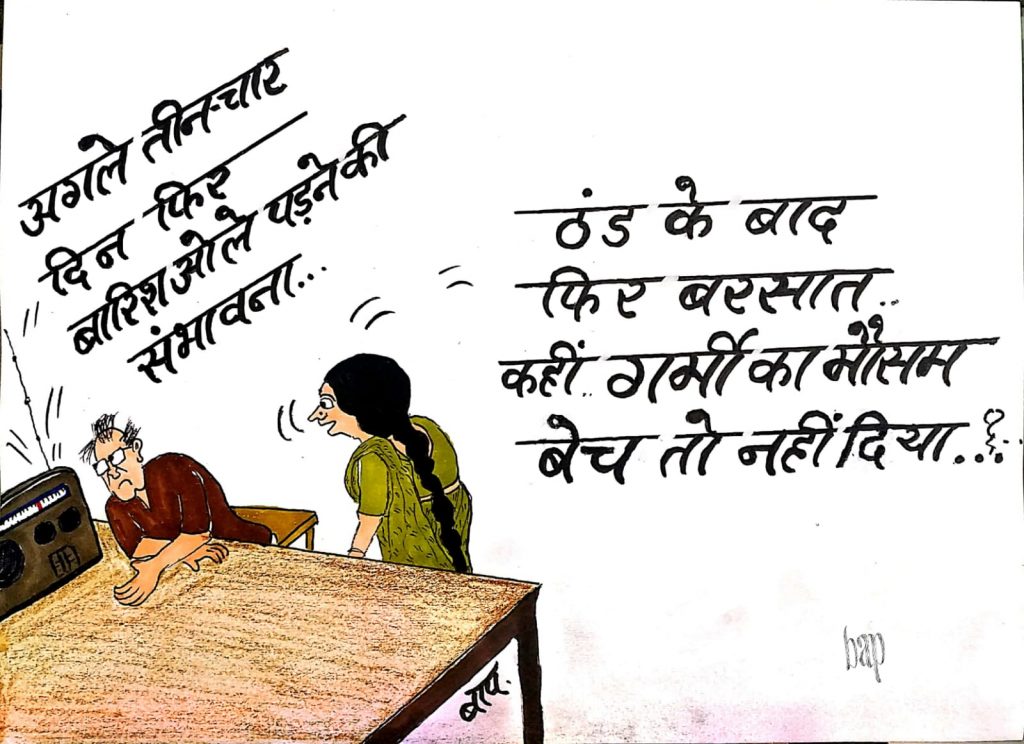 अगले तीन-चार
दिन फिर
बारिश ओले पड़ने की
संभावना...
ठंड के बाद
फिर बरसात..
कहीं.. गर्मी का मौसम
बेच तो नहीं दिया...?...
बाप.
bap